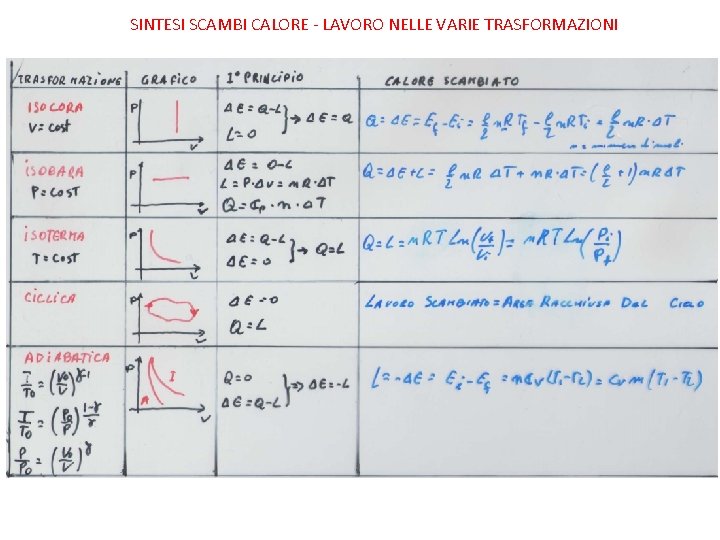 SINTESI SCAMBI CALORE - LAVORO NELLE VARIE TRASFORMAZIONI
TRASFORMAZIONE GRAFICO I° PRINCIPIO CALORE SCAMBIATO
ISOCORA
V = cost
P
V
ΔE = Q-L
L = 0
→ ΔE = Q
Q = ΔE = Ef - Ei = l/2 nRTf - l/2 nRTi = l/2 nR·ΔT
n = numero di moli
ISOBARA
P = COST
P
V
ΔE = Q-L
L = P·ΔV = nR·ΔT
Q = Cp·n·ΔT
Q = ΔE+L = l/2 nR ΔT + nR·ΔT = (l/2 + 1) nRΔT
ISOTERMA
T = COST
P
V
ΔE = Q-L
ΔE = 0
→ Q=L
Q = L = nRT Ln(Vf/Vi) = nRT Ln(Pi/Pf)
CICLICA
P
V
ΔE = 0
Q = L
LAVORO SCAMBIATO = AREA RACCHIUSA DAL CICLO
ADIABATICA
T/T0 = (V0/V)^γ-1
T/T0 = (P0/P)^1-γ/γ
P/P0 = (V0/V)^γ
P
I
A
V
Q = 0
ΔE = Q-L
⇒ ΔE = -L
L = -ΔE = Ei - Ef = nCv(T1-T2) = Cvn(T1-T2)